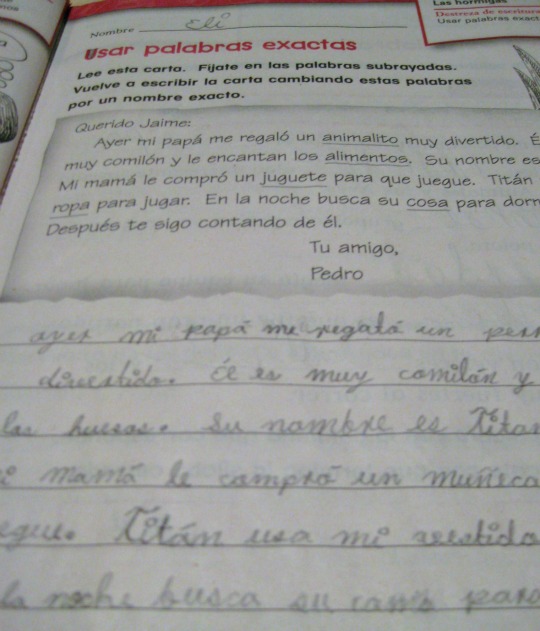 Las hormigas
Destreza de escritura
Usar palabras exact
Nombre Eli
Usar palabras exactas
Lee esta carta. Fíjate en las palabras subrayadas.
Vuelve a escribir la carta cambiando estas palabras
por un nombre exacto.
Querido Jaime:
Ayer mi papá me regaló un animalito muy divertido. É
muy comilón y le encantan los alimentos. Su nombre es
Mi mamá le compró un juguete para que juegue. Titán
ropa para jugar. En la noche busca su cosa para dorm
Después te sigo contando de él.
Tu amigo,
Pedro
ayer mi papá me regaló un perr
divertido. Él es muy comilón y
los huesos. Su nombre es Titan
mi mamá le compró un muñeco
egue. Titán usa mi vestido
la noche busca su cama para